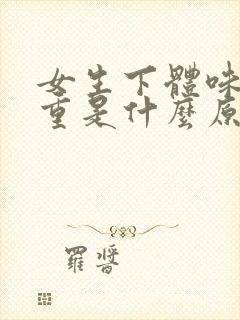 女生下體味
重是什麼原
羅醬